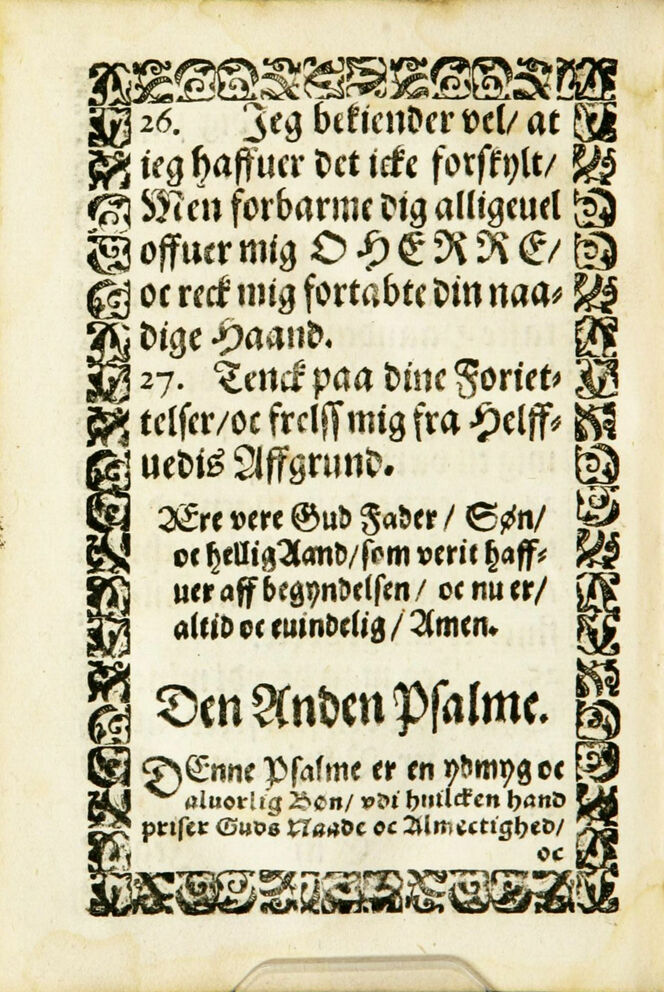 26. Jeg bekiender vel/ at
ieg haffuer det icke forskylt/
Men forbarme dig alligeuel
offuer mig O HERRE/
oc reck mig fortabte din naa⸗
dige Haand.
27. Tenck paa dine Foriet⸗
telser/oc frelss mig fra Helff⸗
uedis Affgrund.
Ære vere Gud Fader / Søn/
oc hellig Aand/som verit haff⸗
uer aff begyndelsen / oc nu er/
altid oc euindelig / Amen.
Den Anden Psalme.
DEnne Psalme er en ydmyg oc
aluorlig Bøn/ vdi huilcken hand
priser Guds Naade oc Almectighed/
oc